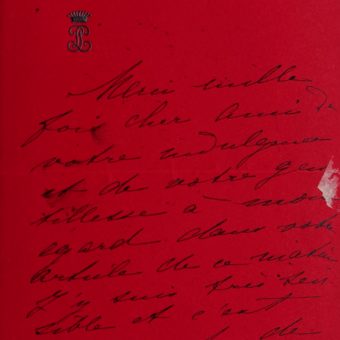 Merci mille
fois cher ami de
votre indulgence
et de votre gen
tillesse à mon
egard dans votre
article de ce matin
J'y suis très sen
sible et c'est
de